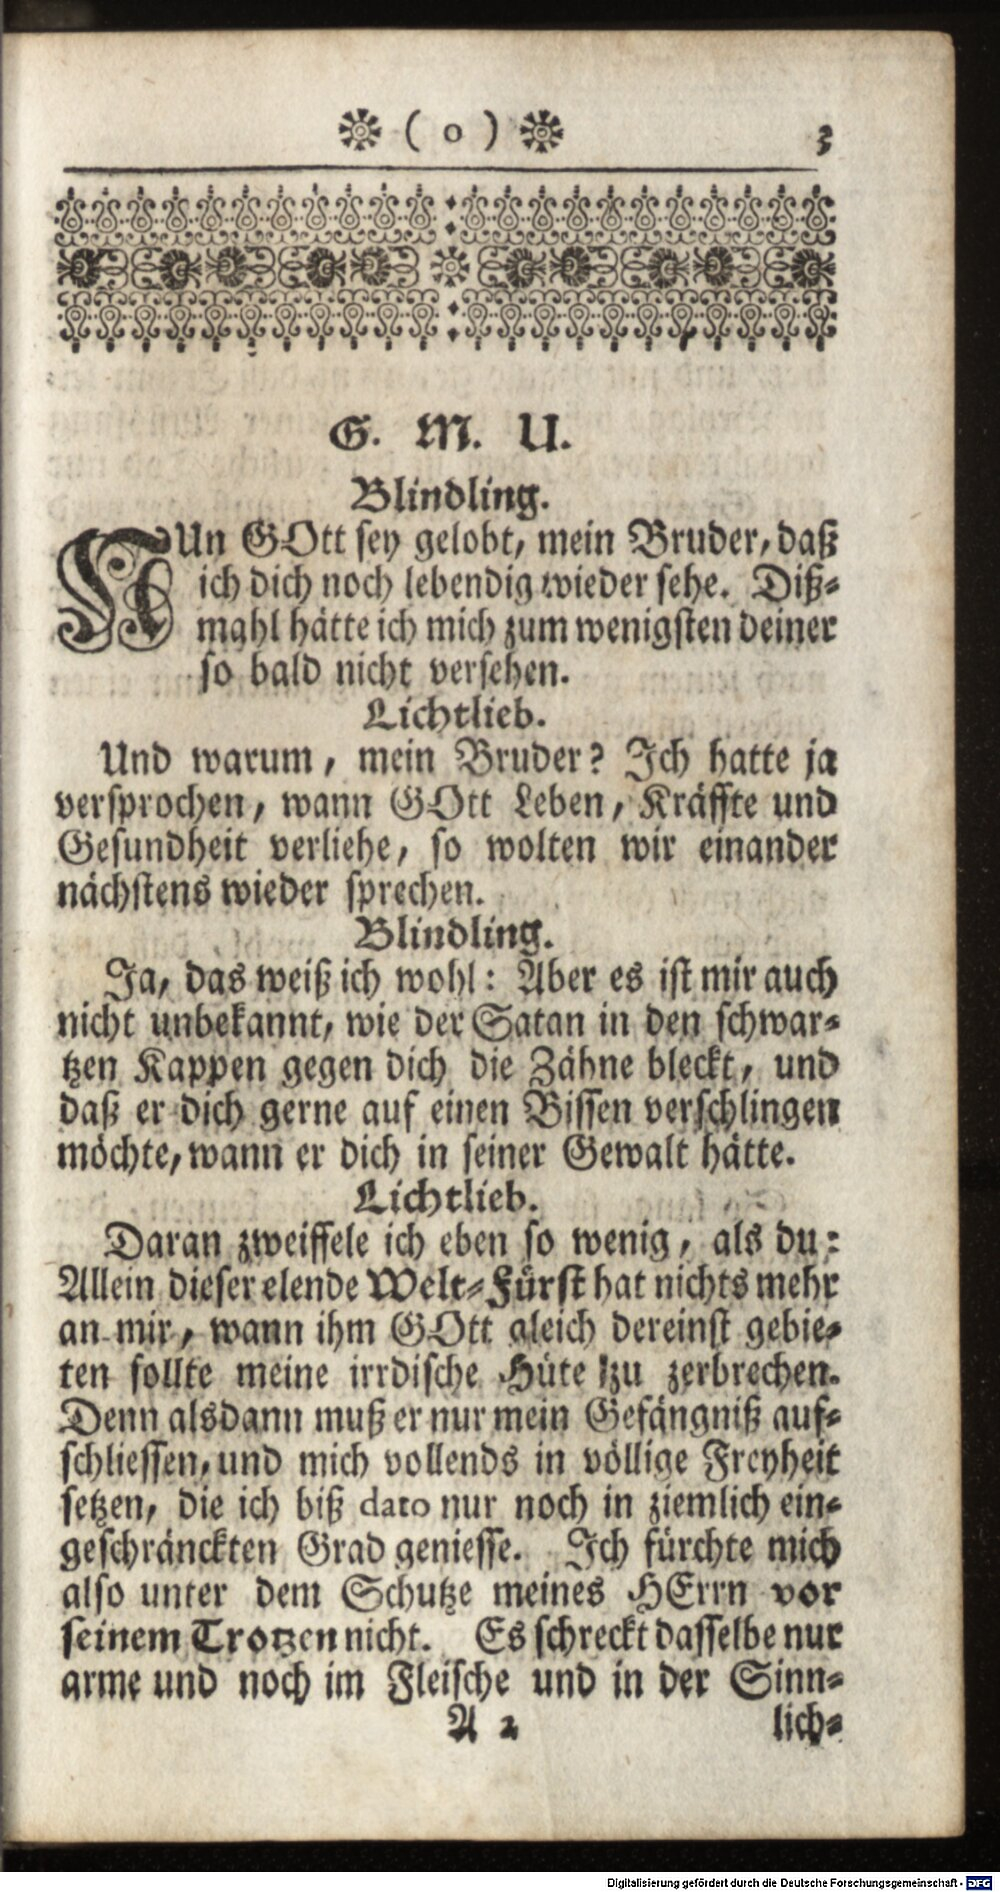 ( o ) 3
G. M. U.
Blindling.
NUn GOtt sey gelobt, mein Bruder, daß
ich dich noch lebendig wieder sehe. Diß-
mahl hätte ich mich zum wenigsten deiner
so bald nicht versehen.
Lichtlieb.
Und warum, mein Bruder? Ich hatte ja
versprochen, wann GOtt Leben, Kräffte und
Gesundheit verliehe, so wolten wir einander
nächstens wieder sprechen.
Blindling.
Ja, das weiß ich wohl: Aber es ist mir auch
nicht unbekannt, wie der Satan in den schwar-
tzen Kappen gegen dich die Zähne bleckt, und
daß er dich gerne auf einen Bissen verschlingen
möchte, wann er dich in seiner Gewalt hätte.
Lichtlieb.
Daran zweiffele ich eben so wenig, als du:
Allein dieser elende Welt-Fürst hat nichts mehr
an mir, wann ihm GOtt gleich dereinst gebie-
ten sollte meine irrdische Hüte zu zerbrechen.
Denn alsdann muß er nur mein Gefängniß auf-
schliessen, und mich vollends in völlige Freyheit
setzen, die ich biß dato nur noch in ziemlich ein-
geschränckten Grad geniesse. Ich fürchte mich
also unter dem Schutze meines HErrn vor
seinem Trotzen nicht. Es schreckt dasselbe nur
arme und noch im Fleische und in der Sinn-
A 2 lich-
Digitalisierung gefördert durch die Deutsche Forschungsgemeinschaft - DFG